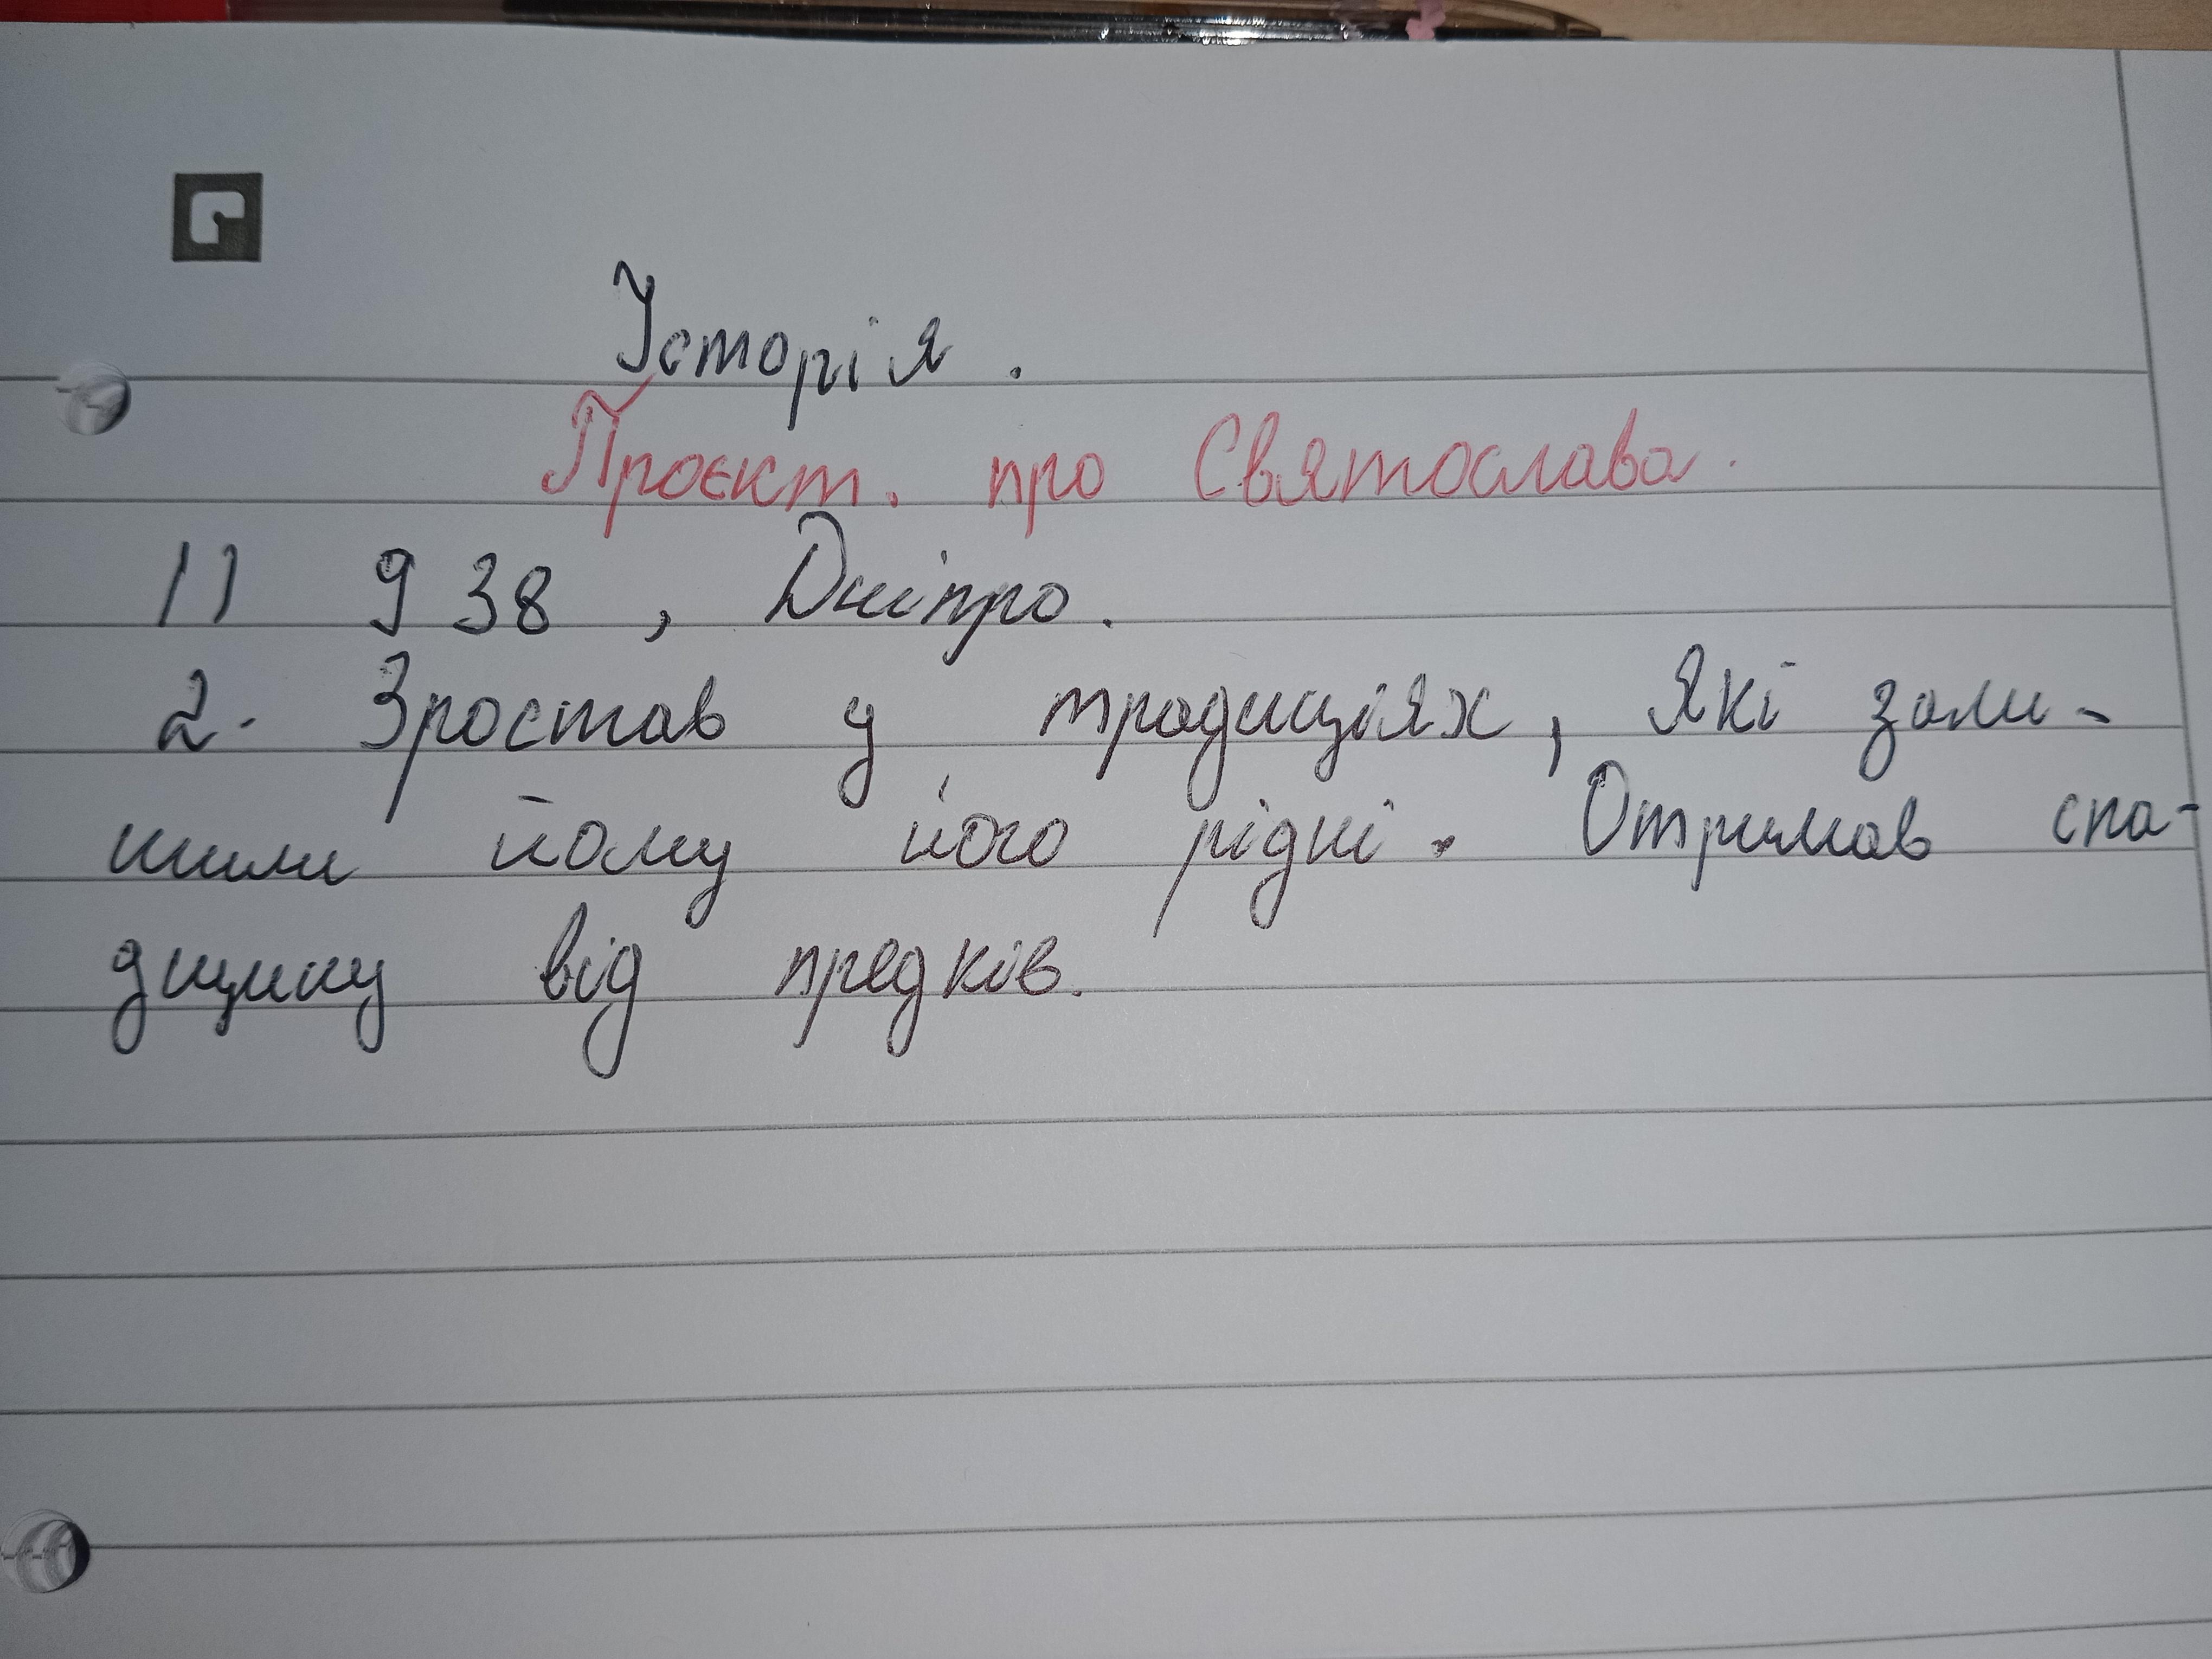 Історія.
Проєкт. про Святослава.
1) 938, Дніпро.
2. Зростав у традиціях, які зали-
шили йому його рідні. Отримав спа-
дщину від предків.